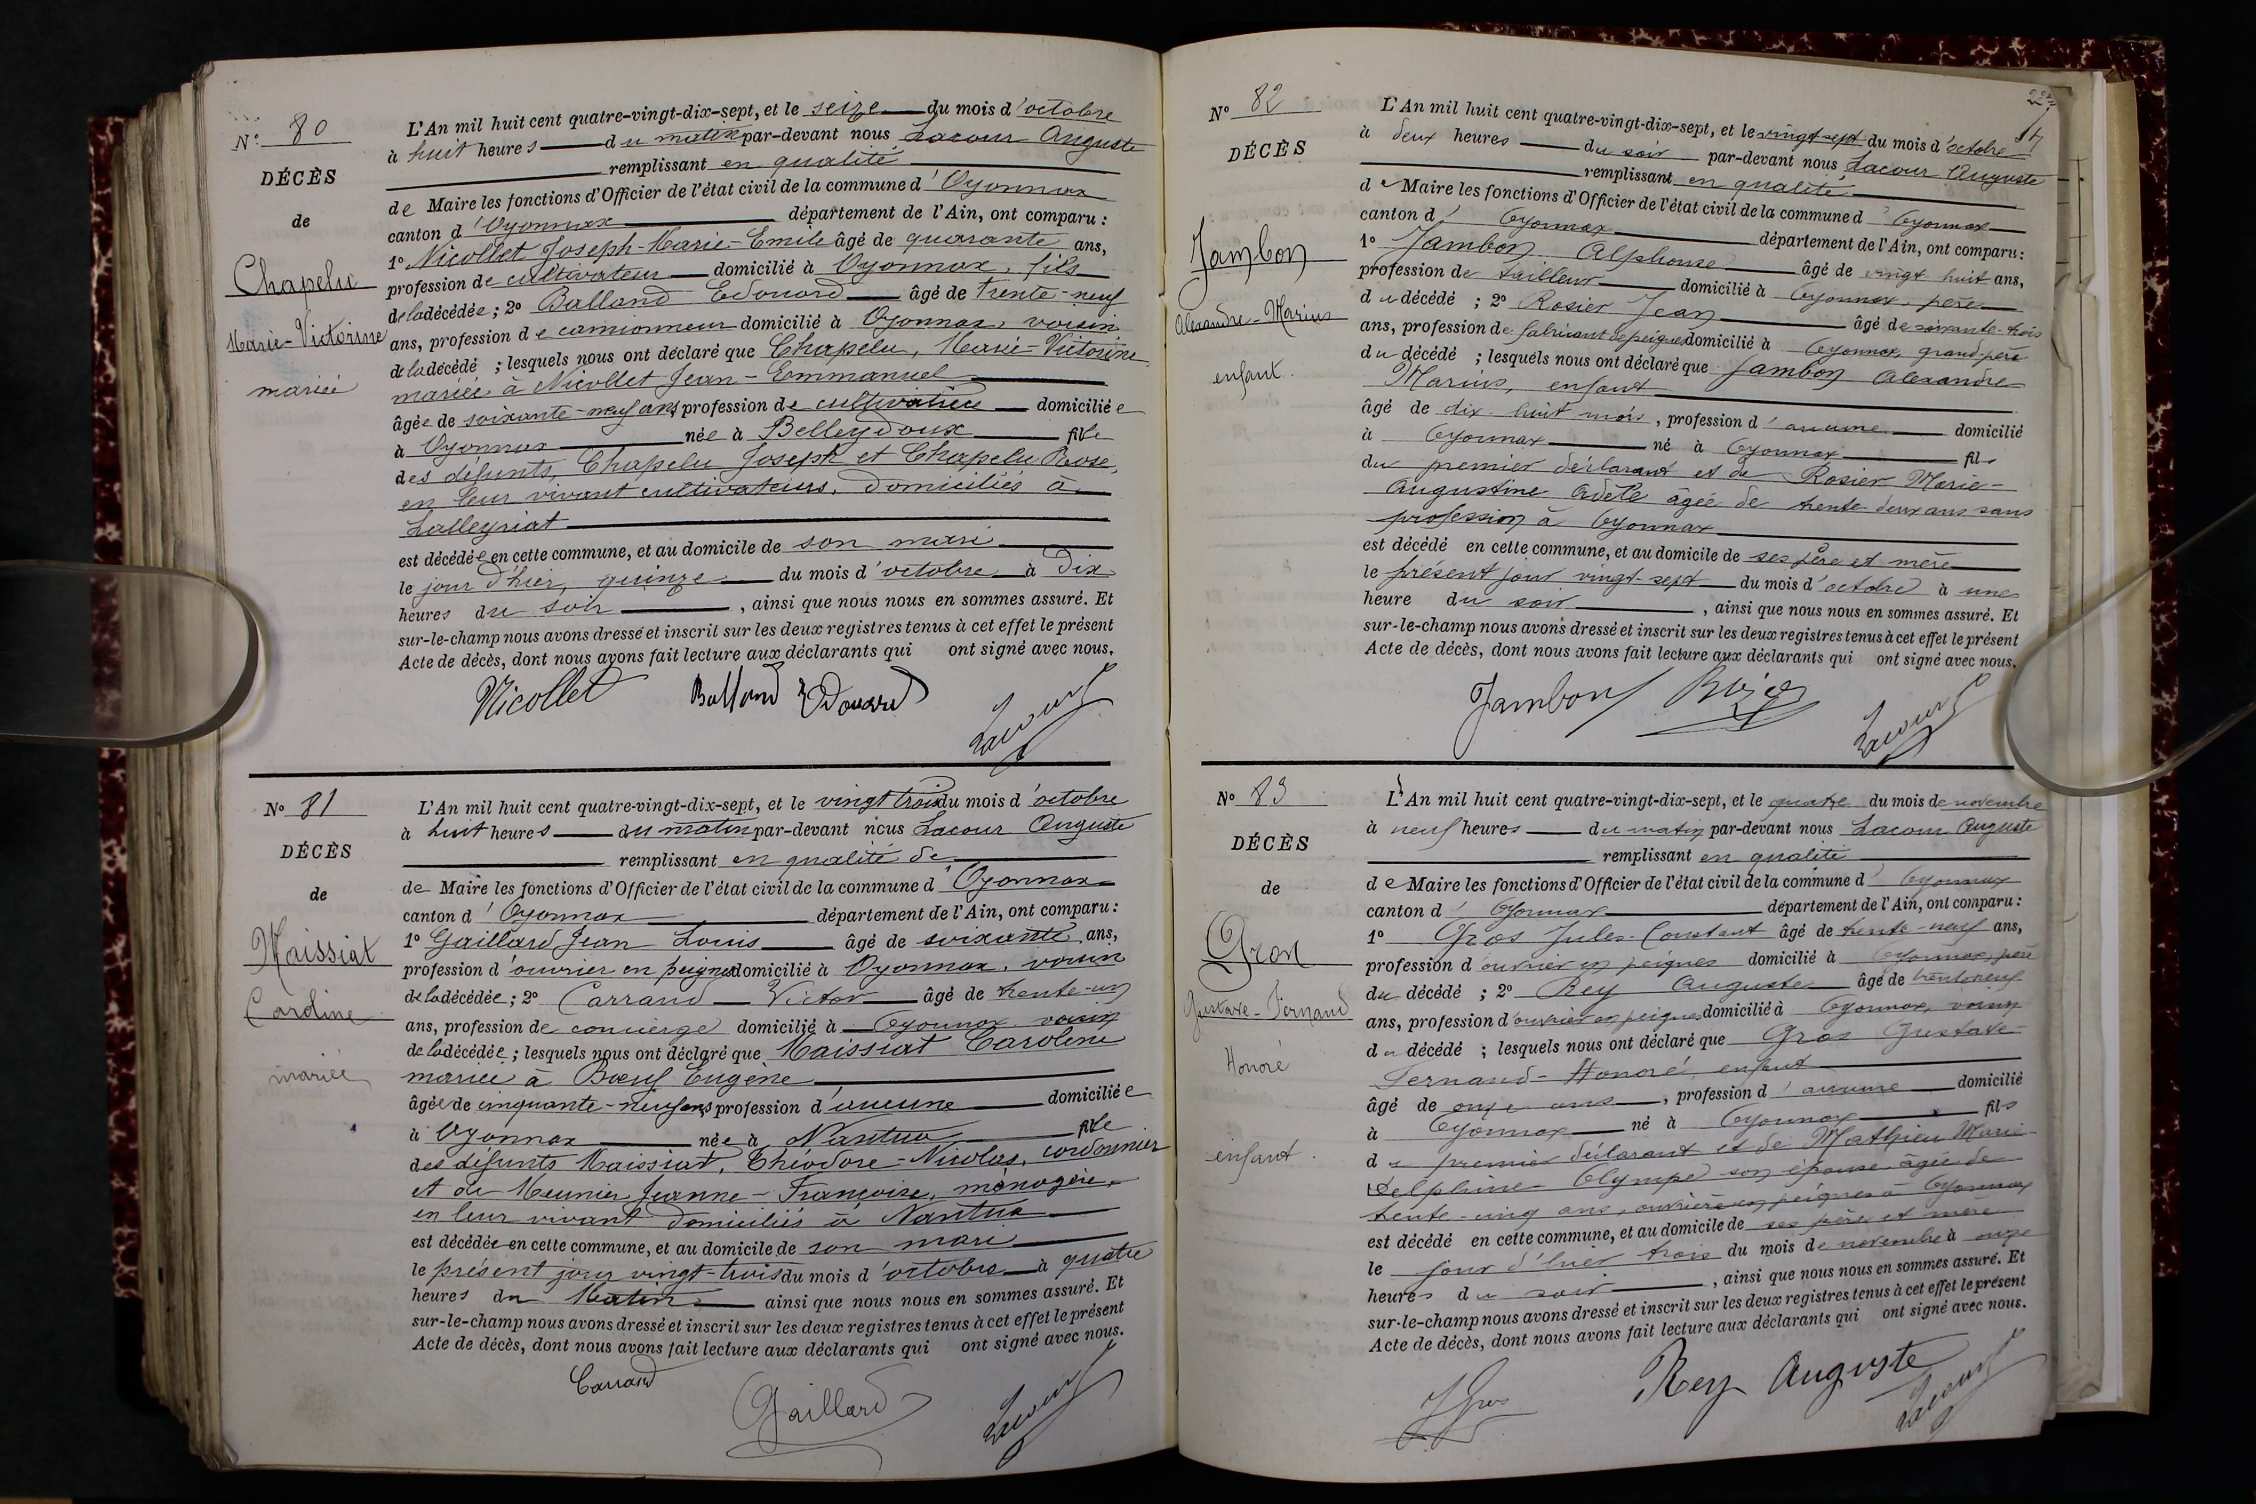 N° 80
DÉCÈS
de
Chapelu
Marie-Victorine
mariée
L'An mil huit cent quatre-vingt-dix-sept, et le seize du mois d'octobre
à huit heures du matin par-devant nous Lacour Auguste
remplissant en qualité
de Maire les fonctions d'Officier de l'état civil de la commune d'Oyonnax
canton d'Oyonnax département de l'Ain, ont comparu :
1° Nicollet Joseph-Marie-Emile âgé de quarante ans,
profession de cultivateur domicilié à Oyonnax, fils
de la décédée ; 2° Balland Edouard âgé de trente-neuf
ans, profession de camionneur domicilié à Oyonnax, voisin
de la décédé ; lesquels nous ont déclaré que Chapelu, Marie-Victorine
mariée à Nicollet Jean-Emmanuel
âgée de soixante-neuf ans profession de cultivatrice domiciliée
à Oyonnax née à Belleydoux fille
des défunts, Chapelu Joseph et Chapelu Rose,
en leur vivant cultivateurs, domiciliés à
Lalleyriat
est décédée en cette commune, et au domicile de son mari
le jour d'hier, quinze du mois d'octobre à dix
heures du soir, ainsi que nous nous en sommes assuré. Et
sur-le-champ nous avons dressé et inscrit sur les deux registres tenus à cet effet le présent
Acte de décès, dont nous avons fait lecture aux déclarants qui ont signé avec nous.
Nicollet Balland Edouard Lacour
N° 81
DÉCÈS
de
Maissiat
Caroline
mariée
L'An mil huit cent quatre-vingt-dix-sept, et le vingt trois du mois d'octobre
à huit heures du matin par-devant nous Lacour Auguste
remplissant en qualité de
de Maire les fonctions d'Officier de l'état civil de la commune d'Oyonnax
canton d'Oyonnax département de l'Ain, ont comparu :
1° Gaillard Jean Louis âgé de soixante ans,
profession d'ouvrier en peignes domicilié à Oyonnax, voisin
de la décédée ; 2° Carrand Victor âgé de trente-un
ans, profession de concierge domicilié à Oyonnax voisin
de la décédée ; lesquels nous ont déclaré que Maissiat Caroline
mariée à Boeuf Eugène
âgée de cinquante-neuf ans profession d'aucune domiciliée
à Oyonnax née à Nantua fille
des défunts Maissiat, Théodore-Nicolas, cordonnier
et de Meunier Jeanne-Françoise, ménagère,
en leur vivant domiciliés à Nantua
est décédée en cette commune, et au domicile de son mari
le présent jour vingt-trois du mois d'octobre à quatre
heures du Matin ainsi que nous nous en sommes assuré. Et
sur-le-champ nous avons dressé et inscrit sur les deux registres tenus à cet effet le présent
Acte de décès, dont nous avons fait lecture aux déclarants qui ont signé avec nous.
Carrand Gaillard Lacour
N° 82
DÉCÈS
Jambon
Alexandre-Marius
enfant.
L'An mil huit cent quatre-vingt-dix-sept, et le vingt-sept du mois d'octobre
à deux heures du soir par-devant nous Lacour Auguste
remplissant en qualité
de Maire les fonctions d'Officier de l'état civil de la commune d'Oyonnax
canton d'Oyonnax département de l'Ain, ont comparu :
1° Jambon Alphonse âgé de vingt huit ans,
profession de tailleur domicilié à Oyonnax, père
du décédé ; 2° Rosier Jean âgé de soixante-trois
ans, profession de fabricant de peignes domicilié à Oyonnax, grand-père
du décédé ; lesquels nous ont déclaré que Jambon Alexandre
Marius, enfant
âgé de dix-huit mois, profession d'aucune domicilié
à Oyonnax né à Oyonnax fils
du premier déclarant et de Rosier Marie-
Augustine Adèle âgée de trente deux ans sans
profession à Oyonnax
est décédé en cette commune, et au domicile de ses père et mère
le présent jour vingt-sept du mois d'octobre à une
heure du soir, ainsi que nous nous en sommes assuré. Et
sur-le-champ nous avons dressé et inscrit sur les deux registres tenus à cet effet le présent
Acte de décès, dont nous avons fait lecture aux déclarants qui ont signé avec nous.
Jambon Lacour
N° 83
DÉCÈS
de
Gros
Gustave-Fernand
Honoré
enfant.
L'An mil huit cent quatre-vingt-dix-sept, et le quatre du mois de novembre
à neuf heures du matin par-devant nous Lacour Auguste
remplissant en qualité
de Maire les fonctions d'Officier de l'état civil de la commune d'Oyonnax
canton d'Oyonnax département de l'Ain, ont comparu :
1° Gros Jules-Constant âgé de trente-neuf ans,
profession d'ouvrier en peignes domicilié à Oyonnax, père
du décédé ; 2° Rey Auguste âgé de trente neuf
ans, profession d'ouvrier en peignes domicilié à Oyonnax, voisin
du décédé ; lesquels nous ont déclaré que Gros Gustave
Fernand-Honoré, enfant
âgé de onze ans, profession d'aucune domicilié
à Oyonnax né à Oyonnax fils
du premier déclarant et de Mathieu Marie-
Delphine Olympe son épouse âgée de
trente-cinq ans, ouvrière en peignes à Oyonnax
est décédé en cette commune, et au domicile de ses père et mère
le jour d'hier trois du mois de novembre à onze
heures du soir, ainsi que nous nous en sommes assuré. Et
sur-le-champ nous avons dressé et inscrit sur les deux registres tenus à cet effet le présent
Acte de décès, dont nous avons fait lecture aux déclarants qui ont signé avec nous.
JGros Rey Auguste Lacour